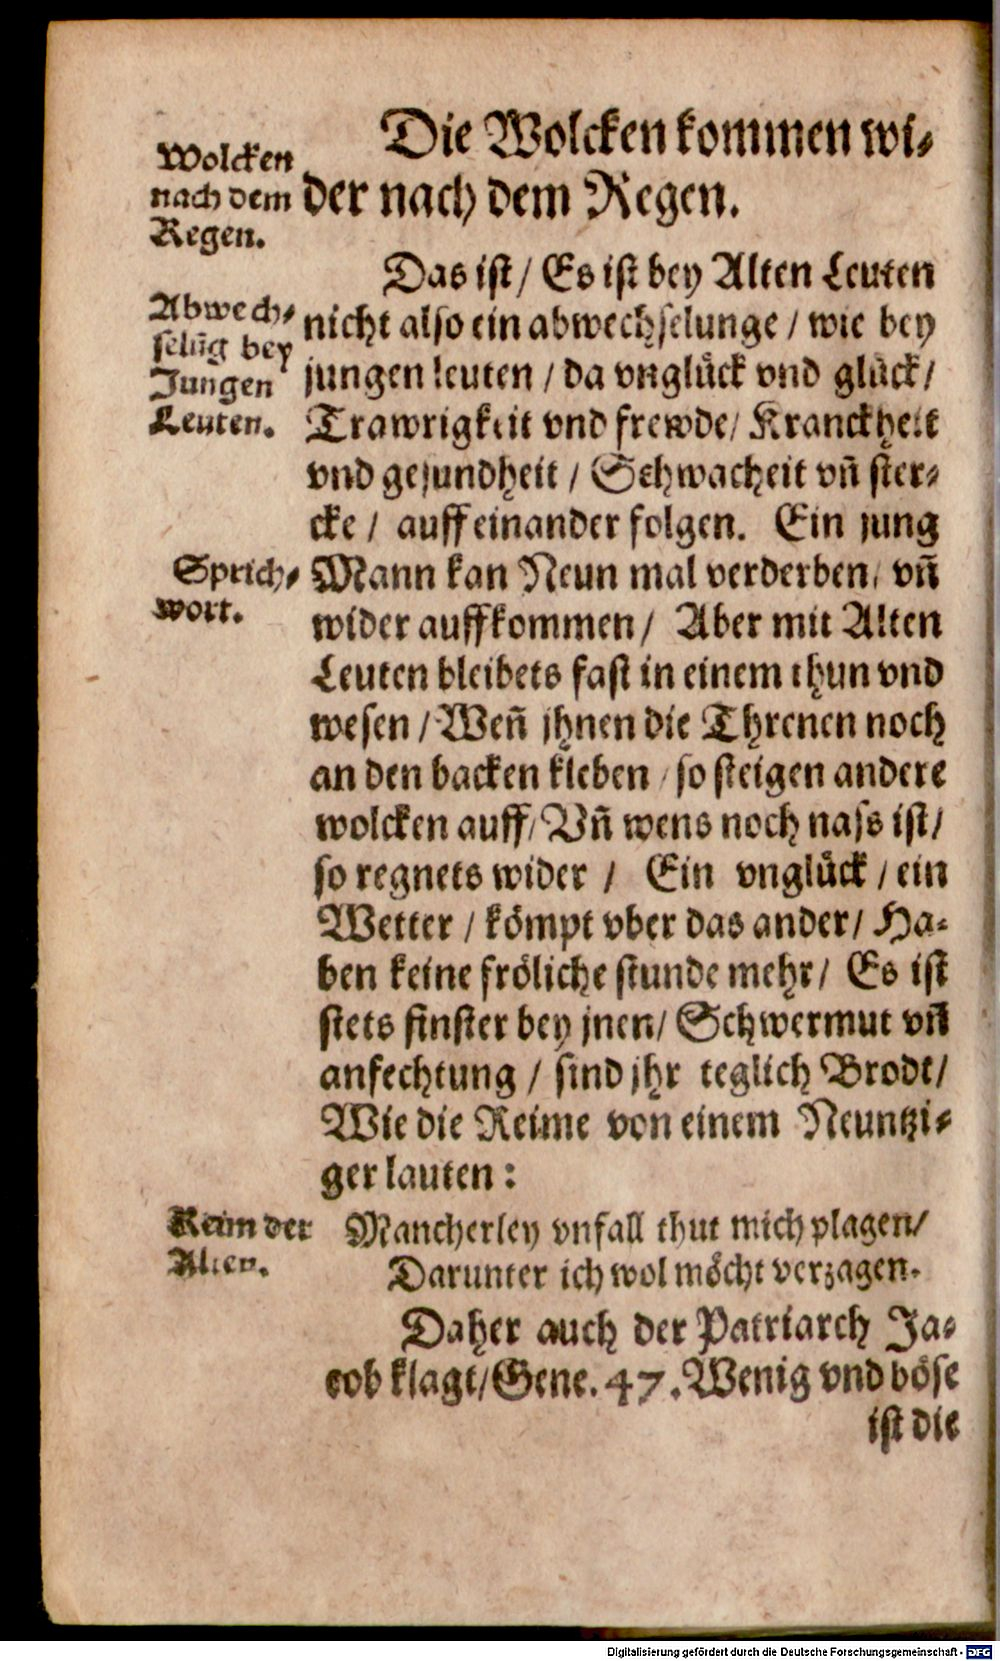 Wolcken
nach dem
Regen.
Die Wolcken kommen wi-
der nach dem Regen.
Abwech-
selūg bey
Jungen
Leuten.
Das ist / Es ist bey Alten Leuten
nicht also ein abwechselunge / wie bey
jungen leuten / da vnglück vnd glück /
Trawrigkeit vnd frewde / Kranckheit
vnd gesundheit / Schwacheit vñ ster-
cke / auff einander folgen. Ein jung
Sprich-
wort.
Mann kan Neun mal verderben / vñ
wider auffkommen / Aber mit Alten
Leuten bleibets fast in einem thun vnd
wesen / Weñ jhnen die Threnen noch
an den backen kleben / so steigen andere
wolcken auff / Vñ wens noch nass ist /
so regnets wider / Ein vnglück / ein
Wetter / kömpt vber das ander / Ha-
ben keine fröliche stunde mehr / Es ist
stets finster bey jnen / Schwermut vñ
anfechtung / sind jhr teglich Brodt /
Wie die Reime von einem Neuntzi-
ger lauten :
Reim der
Alten.
Mancherley vnfall thut mich plagen /
Darunter ich wol möcht verzagen.
Daher auch der Patriarch Ja-
cob klagt / Gene. 47. Wenig vnd böse
ist die
Digitalisierung gefördert durch die Deutsche Forschungsgemeinschaft - DFG